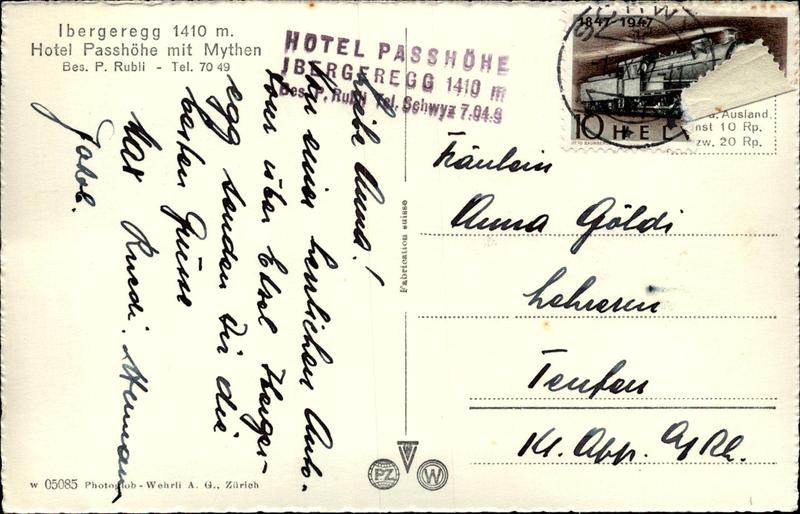 Ibergeregg 1410 m.
Hotel Passhöhe mit Mythen
Bes. P. Rubli - Tel. 70 49
HOTEL PASSHÖHE
IBERGEREGG 1410 m
Bes. P. Rubli Tel. Schwyz 7.04.9
1847-1947
10 HELV
u. Ausland,
nst 10 Rp.
zw. 20 Rp.
Liebe Anna!
Von einer herrlichen Auto-
tour über Etzel Iberger-
egg senden Dir die
besten Grüsse
Max Ruedi. Hermann
Fräulein
Anna Göldi
Lehrerin
Teufen
Kt. App. A/Rh.
Fabrication suisse
PZ W
W 05085 Photoglob-Wehrli A. G., Zürich